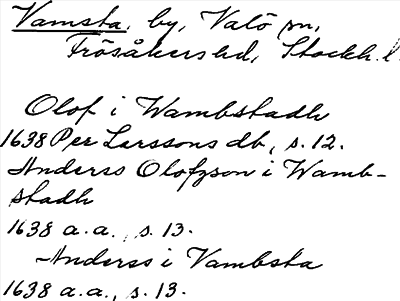 Vamsta, by, Valö sn,
Frösåkers hd, Stockh. l.
Olof i Wambstadh
1638 Per Larssons db, s. 12.
Anders Olofzson i Wamb-
stadh
1638 a. a., s. 13.
Anders i Vambsta
1638 a. a., s. 13.